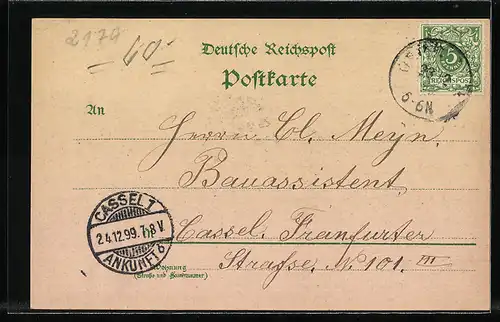 2179
40.-
Deutsche Reichspost
Postkarte
5
REICHSPOST
6-6N
An
Herrn Cl. Meyn.
Bauassistent
CASSEL 1
24.12.99. 7-8V.
ANKUNFT
in Cassel. Frankfurter
Wohnung
Strasse. No 101. III
(Straße und Hausnummer)